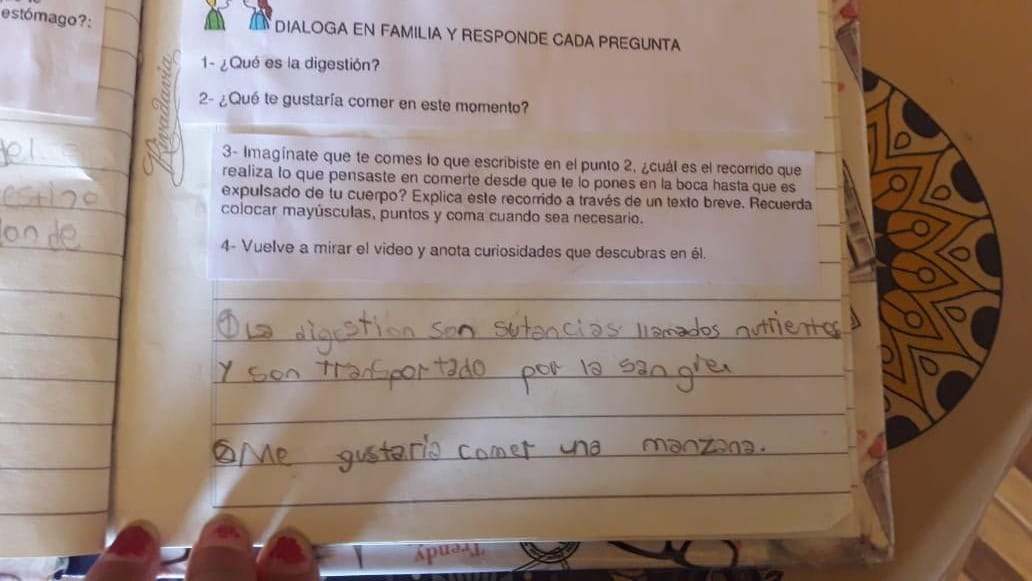 estómago?:
DIALOGA EN FAMILIA Y RESPONDE CADA PREGUNTA
1- ¿Qué es la digestión?
2- ¿Qué te gustaría comer en este momento?
Rivadavia
3- Imagínate que te comes lo que escribiste en el punto 2, ¿cuál es el recorrido que
realiza lo que pensaste en comerte desde que te lo pones en la boca hasta que es
expulsado de tu cuerpo? Explica este recorrido a través de un texto breve. Recuerda
colocar mayúsculas, puntos y coma cuando sea necesario.
4- Vuelve a mirar el video y anota curiosidades que descubras en él.
① La digestion son sutancias llamados nutrientes
y son transportado por la sangre
② Me gustaria comer una manzana.
Trendy